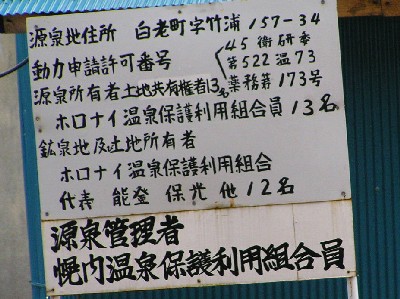 源泉地住所 白老町字竹浦157-34
動力申請許可番号 45衛研季
第522温73
業務第173号
源泉所有者土地共有権者13名
ホロナイ温泉保護利用組合員13名
鉱泉地及土地所有者
ホロナイ温泉保護利用組合
代表 能登 保光 他12名
源泉管理者
幌内温泉保護利用組合員